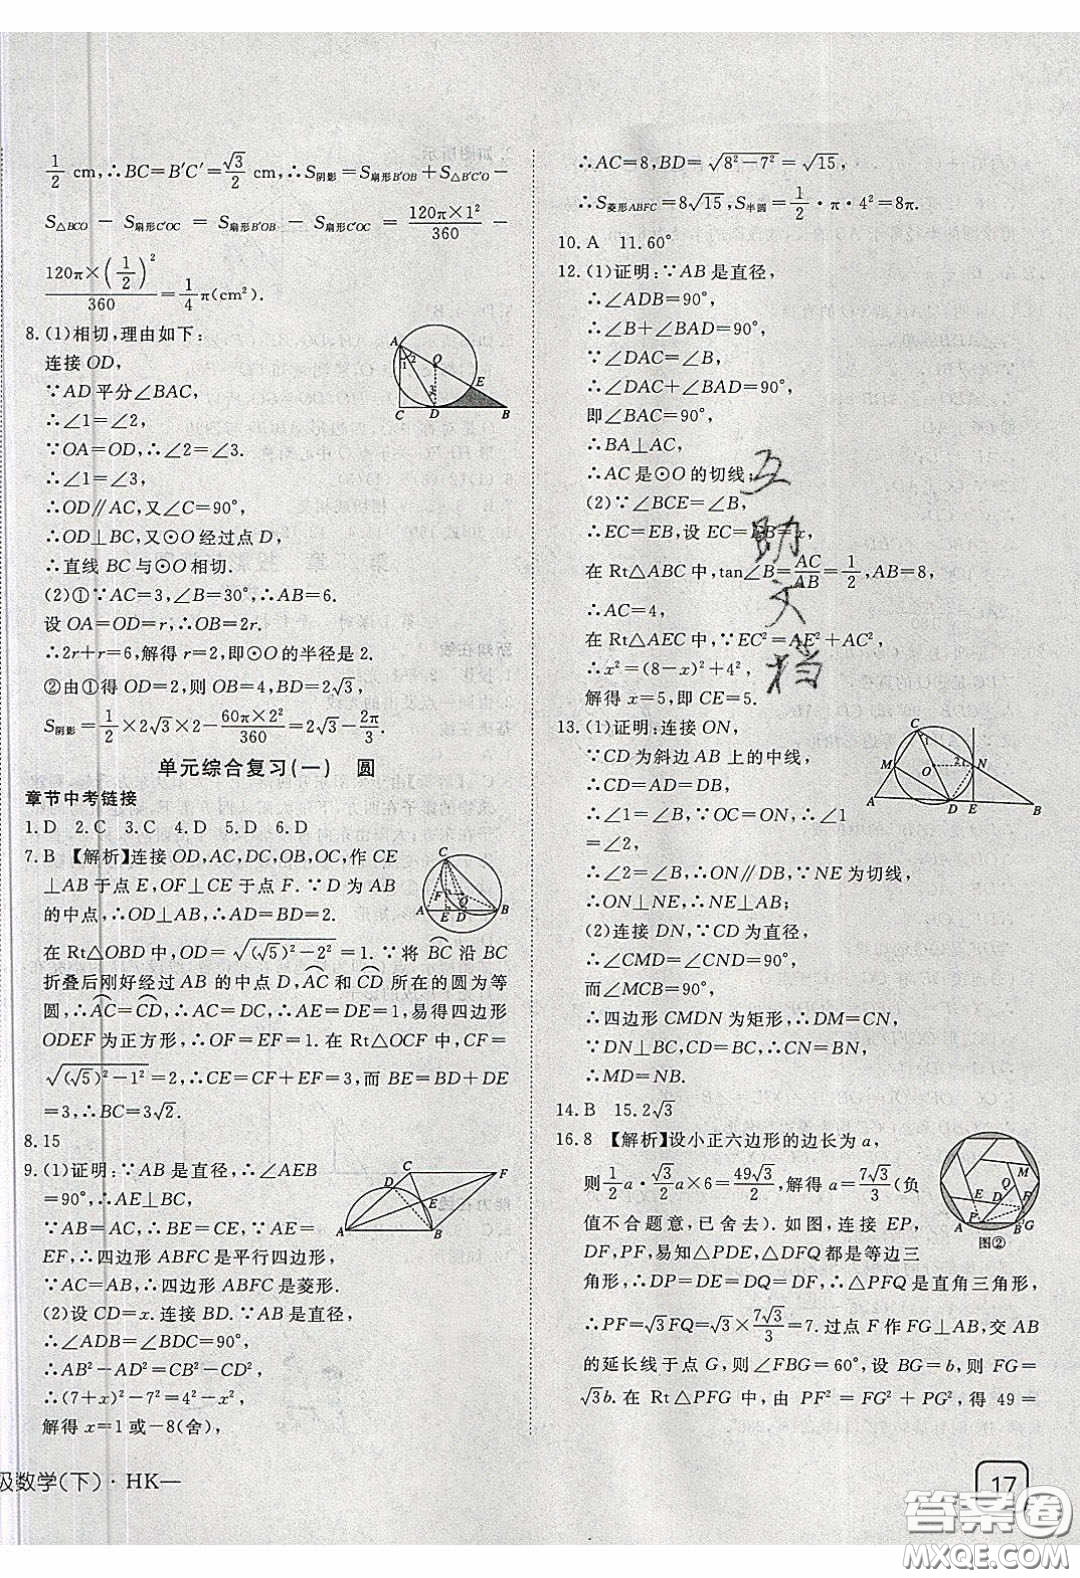 1/2 cm,∴BC=B′C′=√3/2 cm,∴S阴影=S扇形B′OB+S△B′C′O−
S△BCO − S扇形C′OC = S扇形B′OB − S扇形C′OC = 120π×1²/360 −
120π×(1/2)²/360=1/4π(cm²).
8.(1)相切,理由如下:
连接OD,
∵AD平分∠BAC,
∴∠1=∠2,
∵OA=OD,∴∠2=∠3.
∴∠1=∠3,
∴OD∥AC,又∠C=90°,
∴OD⊥BC,又⊙O经过点D,
∴直线BC与⊙O相切.
(2)①∵AC=3,∠B=30°,∴AB=6.
设OA=OD=r,∴OB=2r.
∴2r+r=6,解得r=2,即⊙O的半径是2.
②由①得OD=2,则OB=4,BD=2√3,
S阴影=1/2×2√3×2−60π×2²/360=2√3−2π/3.
单元综合复习(一) 圆
章节中考链接
1.D 2.C 3.C 4.D 5.D 6.D
7.B 【解析】连接OD,AC,DC,OB,OC,作CE
⊥AB于点E,OF⊥CE于点F.∵D为AB
的中点,∴OD⊥AB,∴AD=BD=2.
在Rt△OBD中,OD=√((√5)²−2²)=1.∵将⌒BC沿BC
折叠后刚好经过AB的中点D,⌒AC和⌒CD所在的圆为等
圆,∴⌒AC=⌒CD,∴AC=DC,∴AE=DE=1,易得四边形
ODEF为正方形,∴OF=EF=1.在Rt△OCF中,CF=
√((√5)²−1²)=2,∴CE=CF+EF=3,而BE=BD+DE
=3,∴BC=3√2.
8.15
9.(1)证明:∵AB是直径,∴∠AEB
=90°,∴AE⊥BC,
∵AB=AC,∴BE=CE,∵AE=
EF,∴四边形ABFC是平行四边形,
∵AC=AB,∴四边形ABFC是菱形.
(2)设CD=x.连接BD.∵AB是直径,
∴∠ADB=∠BDC=90°,
∴AB²−AD²=CB²−CD²,
∴(7+x)²−7²=4²−x²,
解得x=1或−8(舍),
∴AC=8,BD=√(8²−7²)=√15,
∴S菱形ABFC=8√15,S半圆=1/2·π·4²=8π.
10.A 11.60°
12.(1)证明:∵AB是直径,
∴∠ADB=90°,
∴∠B+∠BAD=90°,
∵∠DAC=∠B,
∴∠DAC+∠BAD=90°,
即∠BAC=90°,
∴BA⊥AC,
∴AC是⊙O的切线;
(2)∵∠BCE=∠B,
∴EC=EB,设EC=EB=x,
在Rt△ABC中,tan∠B=AC/AB=1/2,AB=8,
∴AC=4,
在Rt△AEC中,∵EC²=AE²+AC²,
∴x²=(8−x)²+4²,
解得x=5,即CE=5.
13.(1)证明:连接ON,
∵CD为斜边AB上的中线,
∴CD=BD,
∴∠1=∠B,
∵OC=ON,∴∠1
=∠2,
∴∠2=∠B,∴ON∥DB,∵NE为切线,
∴ON⊥NE,∴NE⊥AB;
(2)连接DN,∵CD为直径,
∴∠CMD=∠CND=90°,
而∠MCB=90°,
∴四边形CMDN为矩形,∴DM=CN,
∵DN⊥BC,∠1=∠B,∴CN=BN,
∴MD=NB.
14.B 15.2√3
16.8 【解析】设小正六边形的边长为a,
则1/2a·√3/2a×6=49√3/2,解得a=7√3/3(负
值不合题意,已舍去).如图,连接EP,
DF,PF,易知△PDE,△DFQ都是等边三
角形,∴DP=DE=DQ=DF,∴△PFQ是直角三角形,
∴PF=√3FQ=√3×7√3/3=7.过点F作FG⊥AB,交AB
的延长线于点G,则∠FBG=60°,设BG=b,则FG=
√3b.在Rt△PFG中,由PF²=FG²+PG²,得49=
图②
级数学(下)·HK—
17
互助文档
答案圈
MXQE.COM